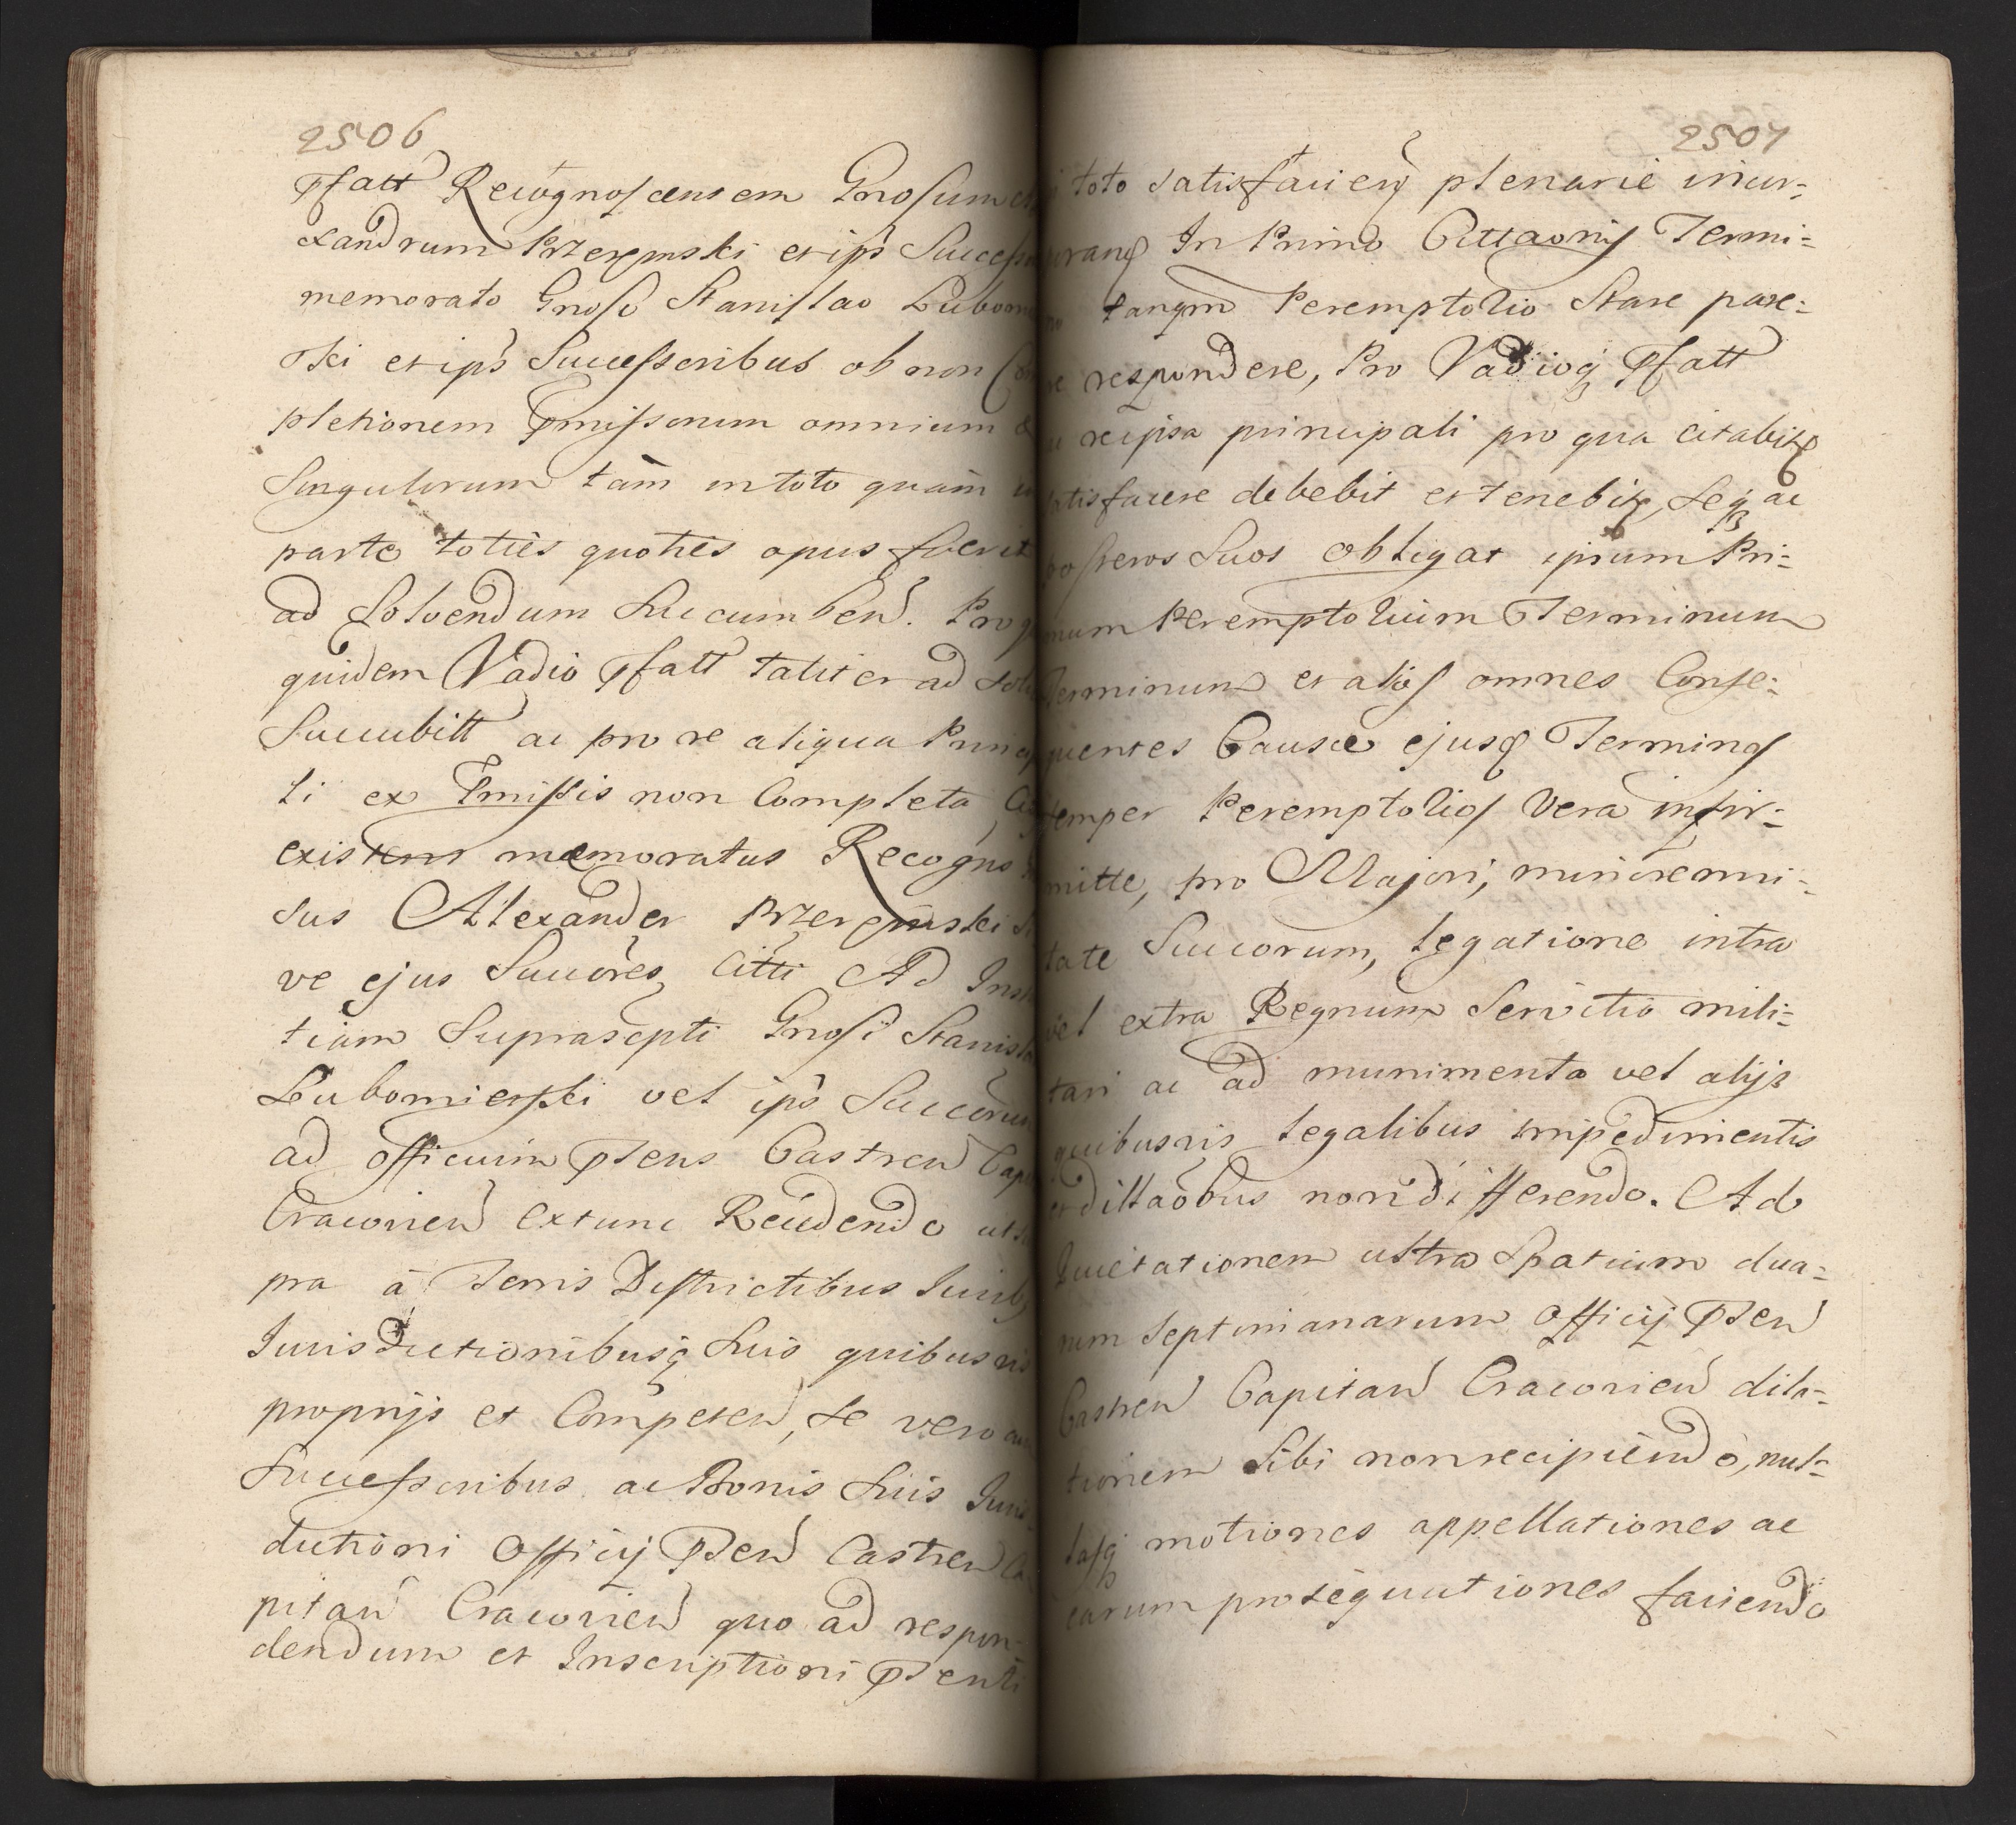 2506
Pfatt Recognoscensem Gnosum
exandrum Przerepmski et ips Success
memorato Gnoso Stanislao Lubom
ski et ips Successoribus ob non Com
pletionem Pmissorum omnium &
Singulorum tam in toto quam in
parte toties quoties opus fuerit
ad Solvendum Succumben. Pro
quidem Vadio Pfatt taliter ad sol
Succubitt ac pro re aliqua Princip
li ex Pmissis non Completa,
existens memoratus Recogno
sus Alexander Przerepmski Si
ve ejus Succores, Citti Ad Inst
tiam Suprascpti Gnosi Stanisl
Lubomierski vel ips Succorum
ad officium Psens Castren Capi
Cracovien extunc Recedendo ut s
pra à Terris Districtibus Jurib
Jurisdictionibusq Suis quibusvis
proprijs et Competen, Se vero ac
Successoribus ac Bonis Suis Juris-
dictioni Officij Psen Castren Ca
pitan Cracovien quo ad respon-
dendum et Inscriptioni Psenti
2507
toto satisfacien plenarie incur=
In Primo Cittaonis Termi=
tanqm Peremptorio Stare pare=
re respondere, Pro Vadioq Pfatt
reipsa principali pro qua citabit
satisfacere debebit et tenebit, Seq ac
posteros Suos obligat ipsum Pri=
mum Peremptorium Terminum
Terminum et alios omnes Conse=
quentes Causae ejusd Terminos
semper Peremptorios Vera infir=
mitte, pro Majori, minorenni=
tate Succorum, legatione intra
vel extra Regnum Servitio mili=
tari ac ad munimenta vel alijs
quibusvis legalibus impedimentis
et dillaobus non differendo. Ad
Quietationem ultra Spatium dua=
rum Septimanarum Officij Psen
Castren Capitan Cracovien dila=
tionem Sibi non recipiendo, nul=
lasq motiones appellationes ac
earum prosequutiones faciendo